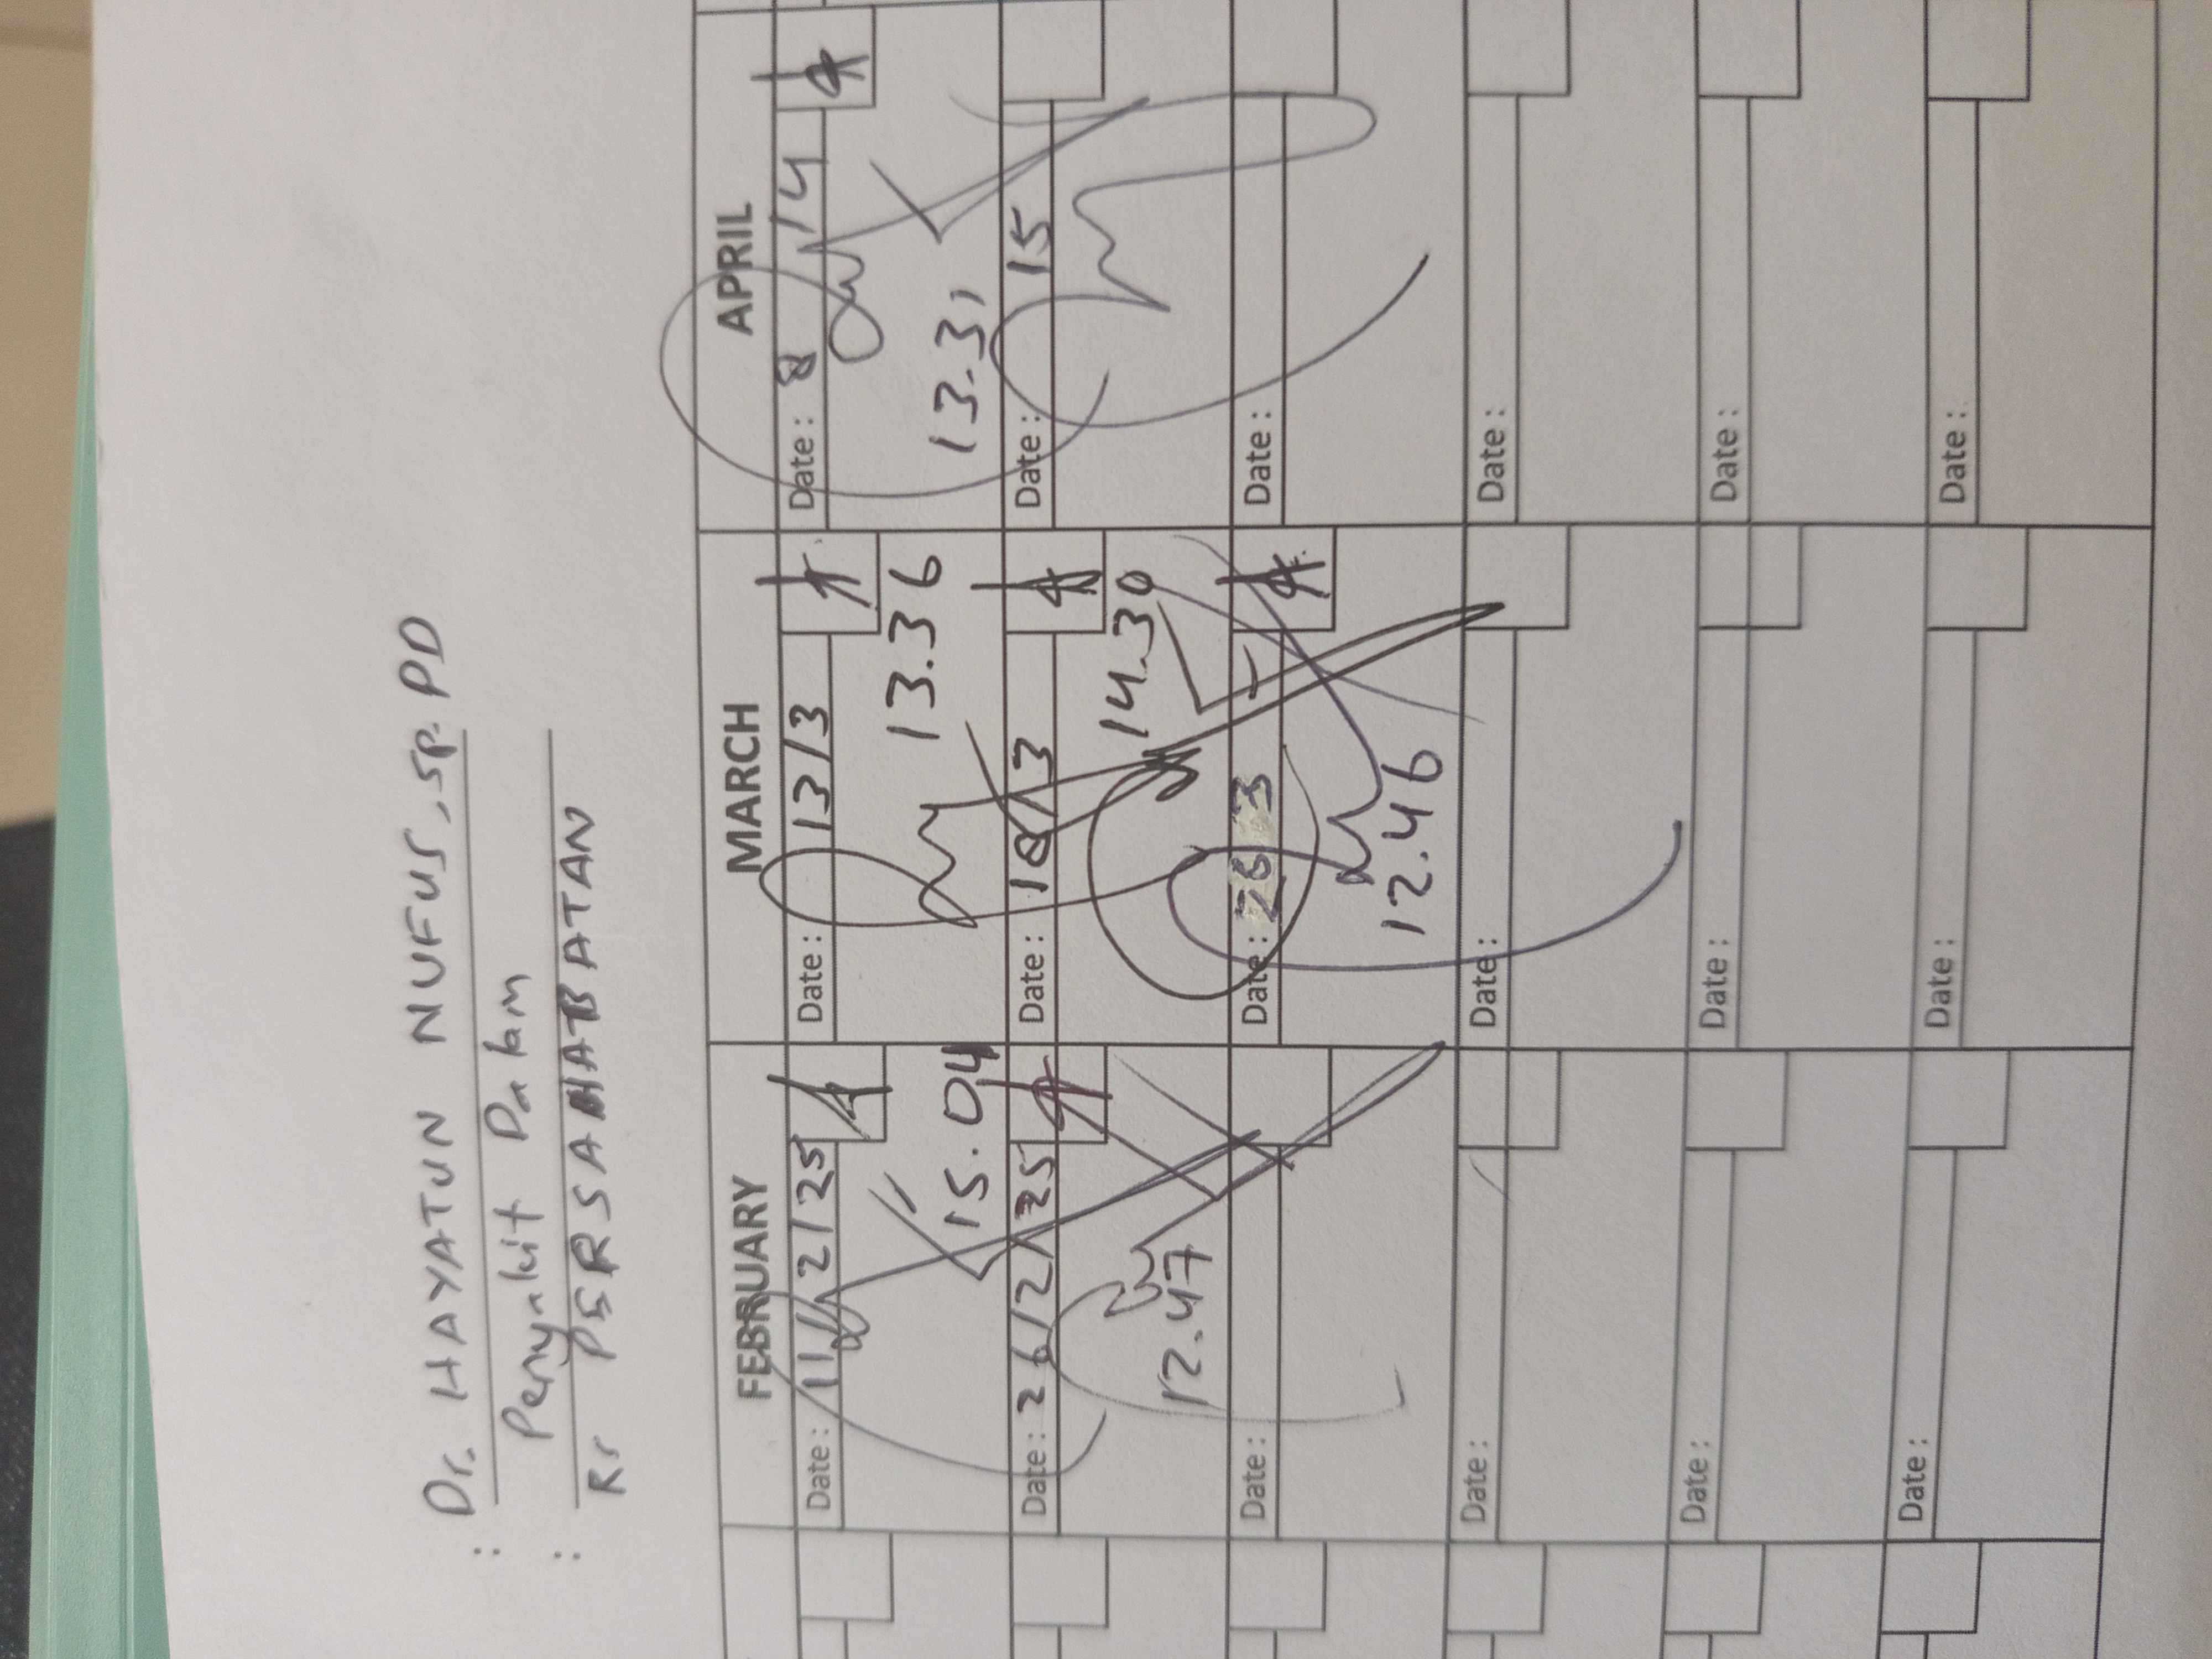 : Dr. HAYATUN NUFUS, SP. PD
Penyakit Dalam
: RS PERSAHABATAN
FEBRUARY MARCH APRIL
Date : 11/2/25 Date : 13/3 Date : 8/4
15.04 13.36 13.31
Date : 26/2/25 Date : 18/3 Date : 15
12.47 14.30
Date : Date : 26 3 Date :
12.46
Date : Date : Date :
Date : Date : Date :
Date : Date : Date :